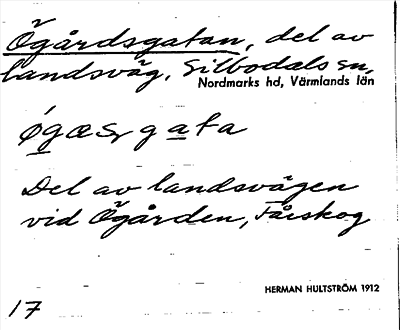 Ögårdsgatan, del av
landsväg, Silbodals sn,
Nordmarks hd, Värmlands län
øgæsgata
Del av landsvägen
vid Ögården, Fåiskog
HERMAN HULTSTRÖM 1912
17